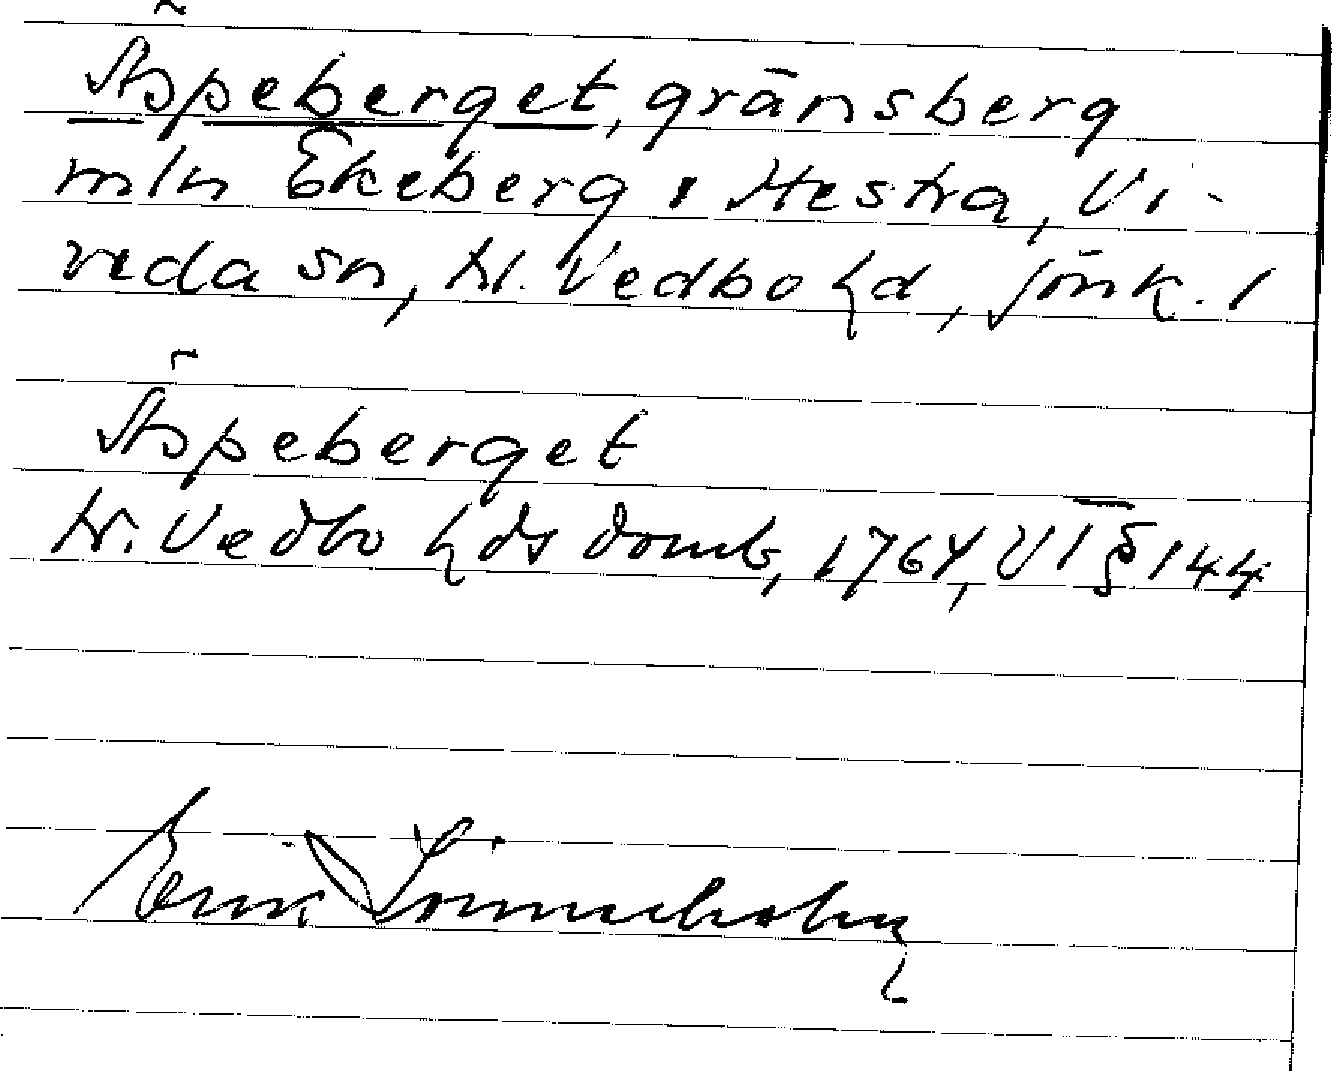 Äspeberget, gränsberg
mln Ekeberg i Hestra, Vi-
reda sn, N. Vedbo hd, Jönk. l
Äspeberget
N. Vedbo hds domb, 1764, VT § 144
Erik Lönnerholm